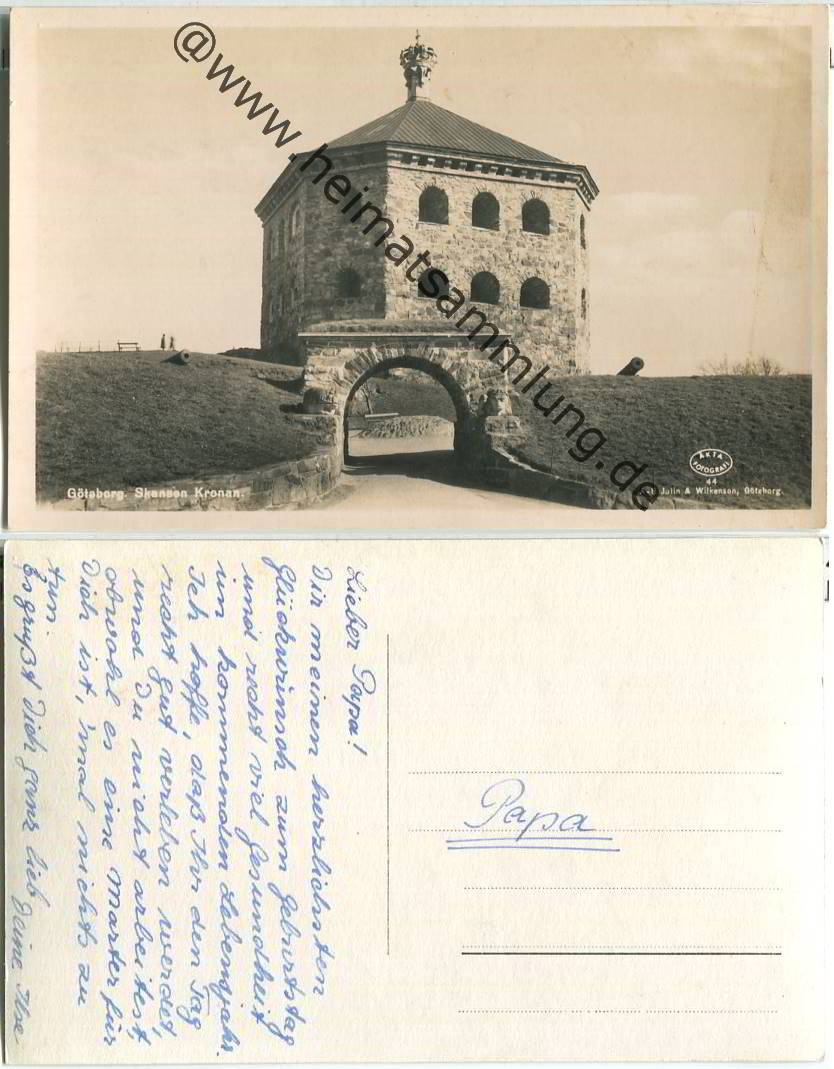 @www.heimatsammlung.de
Göteborg. Skansen Kronan.
ÄKTA
FOTOGRAFI
44
Julin & Wilkenson, Göteborg.
Lieber Papa!
Dir meinen herzlichsten
Glückwunsch zum Geburtstag
und recht viel Gesundheit
im kommenden Lebensjahr.
Ich hoffe, daß Ihr den Tag
recht gut verleben werdet,
und Du nicht arbeitest,
obwohl es eine Marter für
Dich ist, 'mal nichts zu
tun.
Es grüßt Dich ganz lieb Deine Ilse
Papa